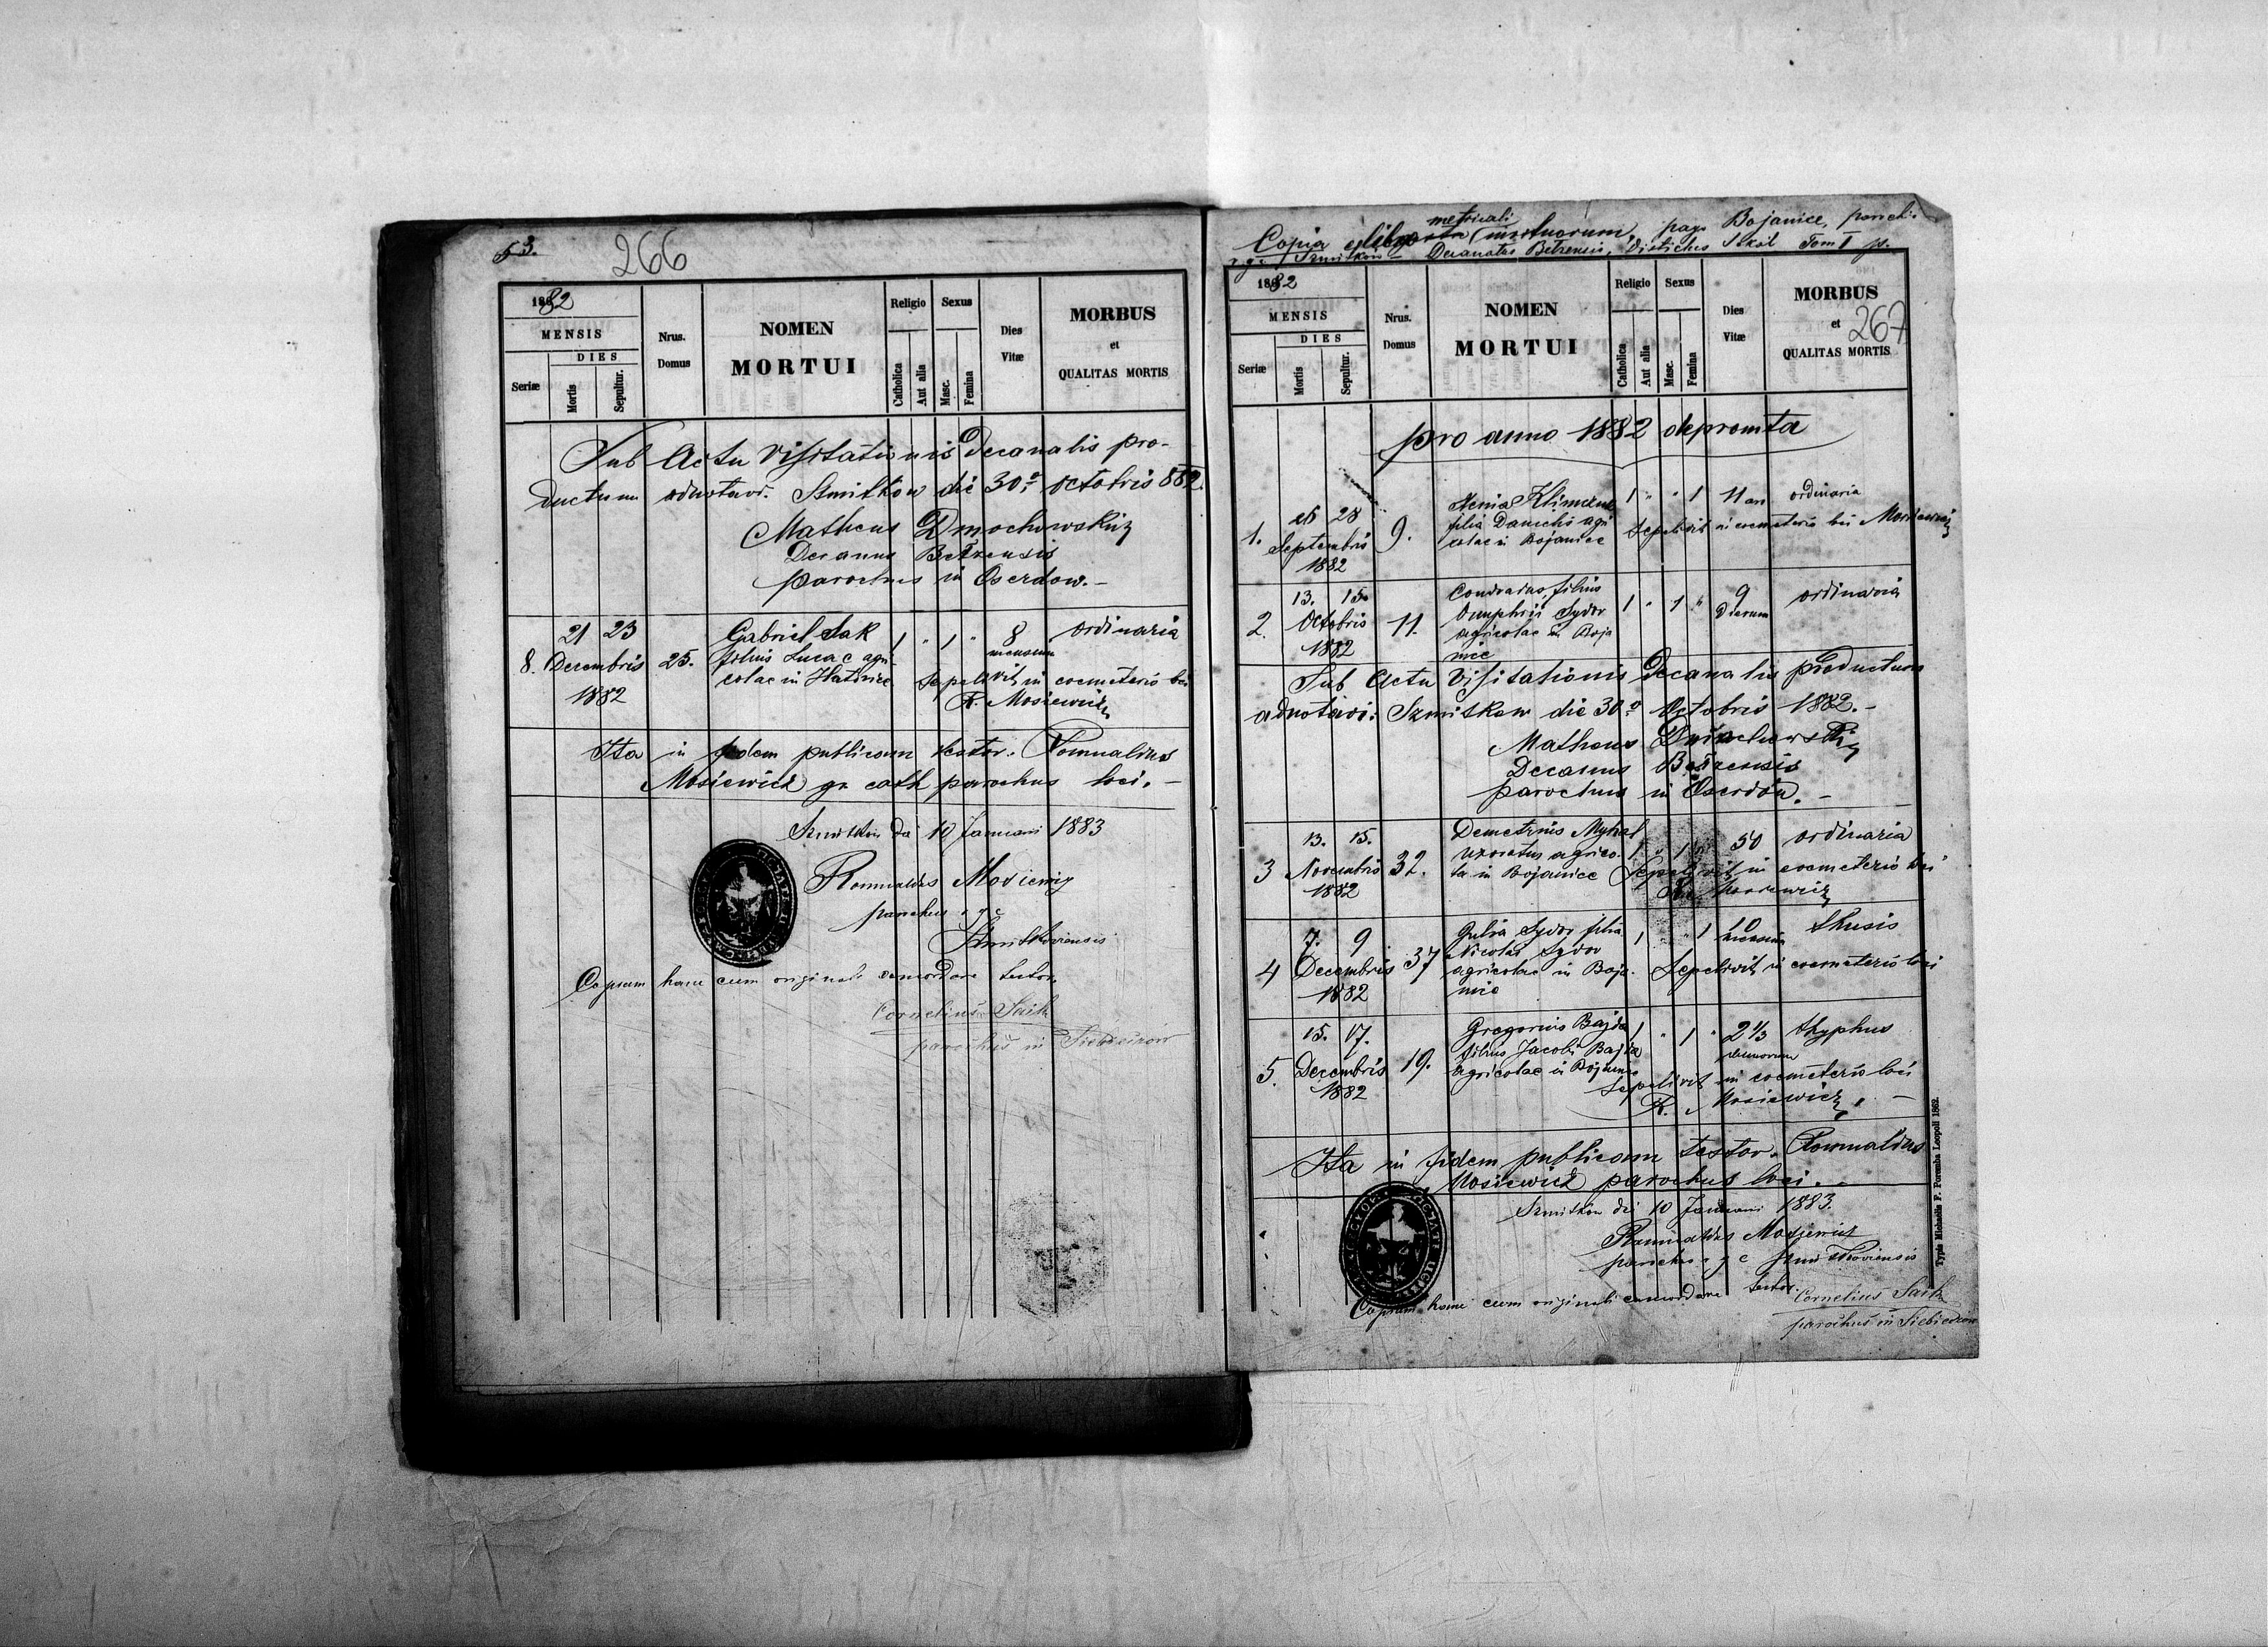 53.
266
1882
MENSIS
DIES
Seriæ
Mortis
Sepultur.
Nrus.
Domus
NOMEN
MORTUI
Religio
Catholica
Aut alia
Sexus
Masc.
Femina
Dies
Vitæ
MORBUS
et
QUALITAS MORTIS
Sub Actu Visitationis Decanalis pro-
ductum adnotavi. Szmitkow die 30a octobris 882.
Matheus Dmochowski
Decanus Bełzensis
parochus in Oserdow.-
8. 21 23 Decembris 1882 25.
Gabriel Sak
filius Lucae agri-
colae in Hatowice
1 " 1 " 8 mensium ordinaria
Sepelivit in coemeterio loci
R. Mosiewicz
Ita in fidem publicam testor. Romualdus
Mosiewicz gr cath parochus loci. -
Szmitków die 10 Januari 1883
Romualdus Mosiewicz
parochus r g c
Szmitkoviensis
Copiam hanc cum originali concordare testor.
Cornelius Saik
parochus in Siebieczów
Copia ex libro metricali mortuorum pago Bojanice, parochi
r. g. c. Szmitkow Decanatus Bełzensis, Districtus Sokal Tom I p.
1882
MENSIS
DIES
Seriæ
Mortis
Sepultur.
Nrus.
Domus
NOMEN
MORTUI
Religio
Catholica
Aut alia
Sexus
Masc.
Femina
Dies
Vitæ
MORBUS
et
267
QUALITAS MORTIS
pro anno 1882 depromta
1. 28 Septembris 1882 9.
filia Danielis agri
colae in Bojanice
1 " " 1 11 an ordinaria
Sepelivit in coemeterio loci Mosiewicz
2. 13. 15. Octobris 1882 11.
Condradus, filius
Onuphrii Sydor
agricolae in Boja
nice
1 " 1 " 9 Dierum ordinaria
Sub Actu Visitationis Decanalis productum
adnotavi: Szmitkow die 30a Octobris 1882.-
Matheus Dmochowski
Decanus Bełzensis
parochus in Oserdow. -
3 13. 15. Novembris 1882 32.
Demetrius Myhal
uxoratus agrico-
la in Bojanice
1 " 1 " 50 ordinaria
Sepelivit in coemeterio loci
R. Mosiewicz
4 7. 9 Decembris 1882 37
Julia Sydor filia
Nicolai Sydor
agricolae in Boja-
nice
1 " " 1 10 mensium thusis
Sepelivit in coemeterio loci
5. 15. 17. Decembris 1882 19.
Gregorius Bajda
filius Jacobi Bajda
agricolae in Bojanice
1 " 1 " 2 1/3 annorum thyphus
Sepelivit in coemeterio loci
R. Mosiewicz. -
Ita in fidem publicam testor. Romualdus
Mosiewicz parochus loci. -
Szmitków die 10 Januari 1883.
Romualdus Mosiewicz
parochus r g c Szmitkoviensis
Copiam hanc cum originali concordare testor.
Cornelius Saik
parochus in Siebieczów
Typis Michaelis F. Poremba Leopoli 1862.